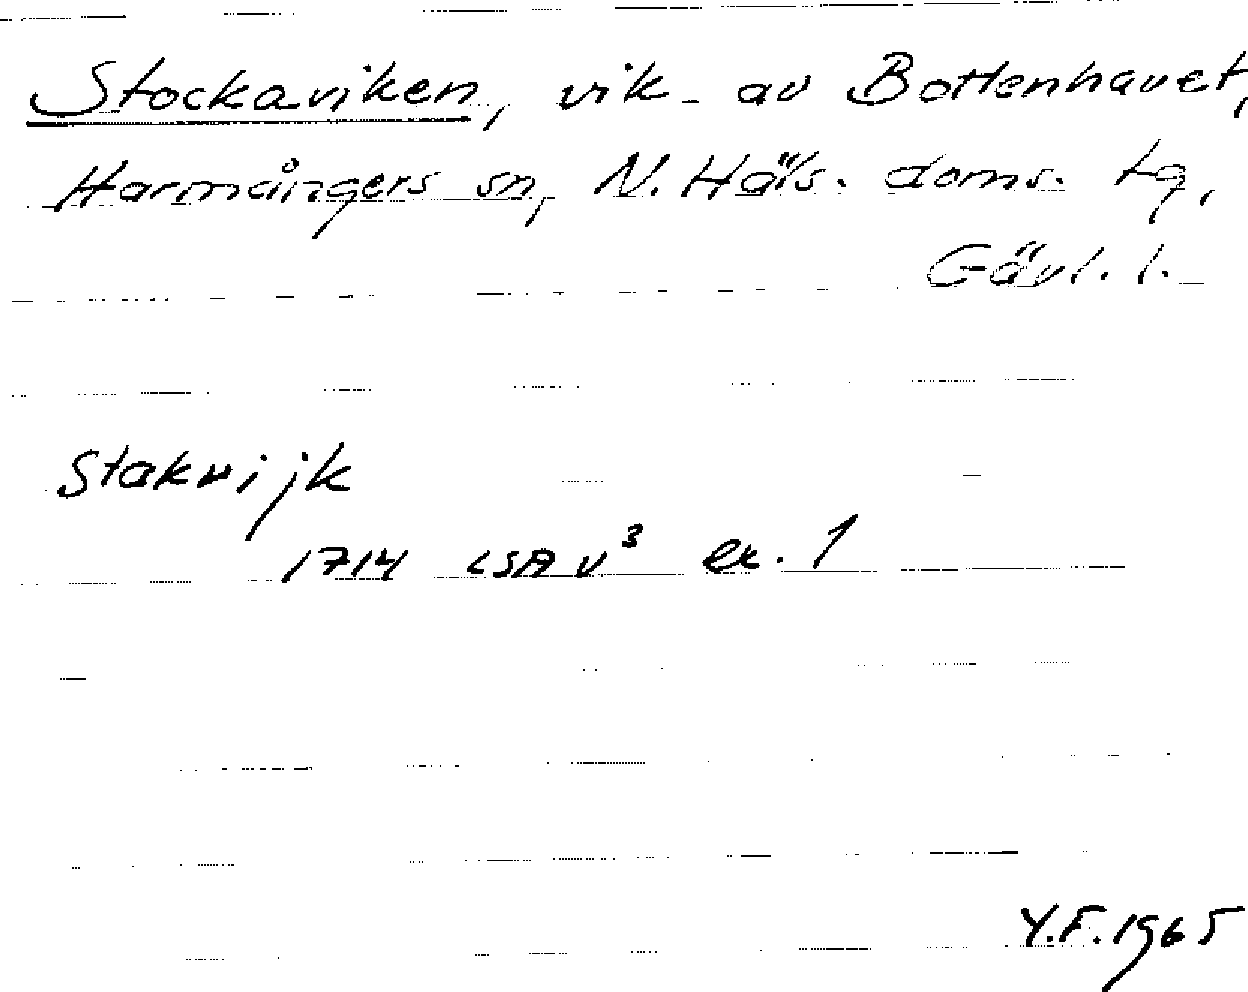 Stockaviken, vik av Bottenhavet,
Harmångers sn, N. Häls. doms. tg,
Gävl. l.
Stakwijk
1714 LSA v³ ex. 1
Y.F. 1965